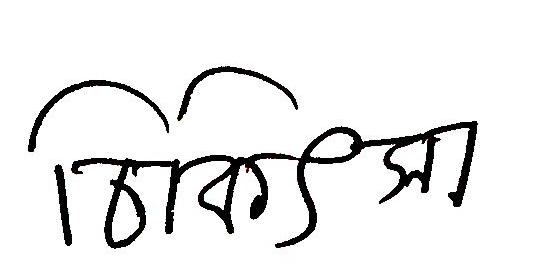 চিকিৎসা